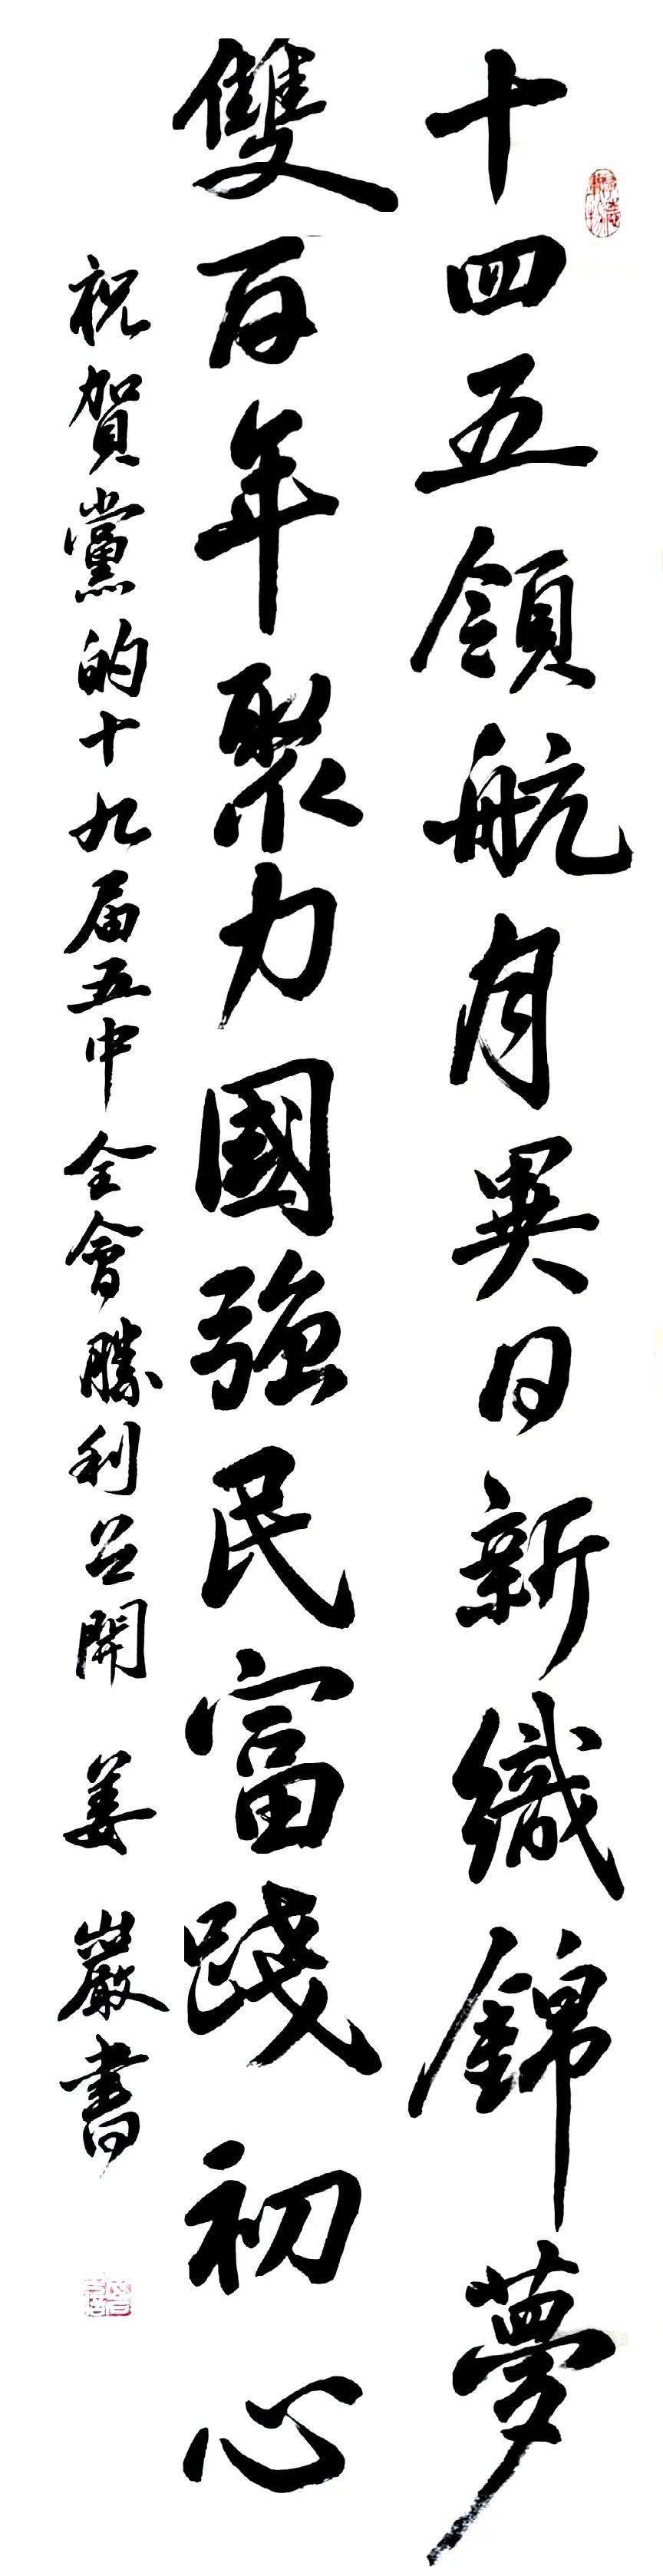 十四五領航月異日新織錦夢
雙百年聚力國強民富踐初心
祝賀黨的十九届五中全會勝利召開 姜巖書